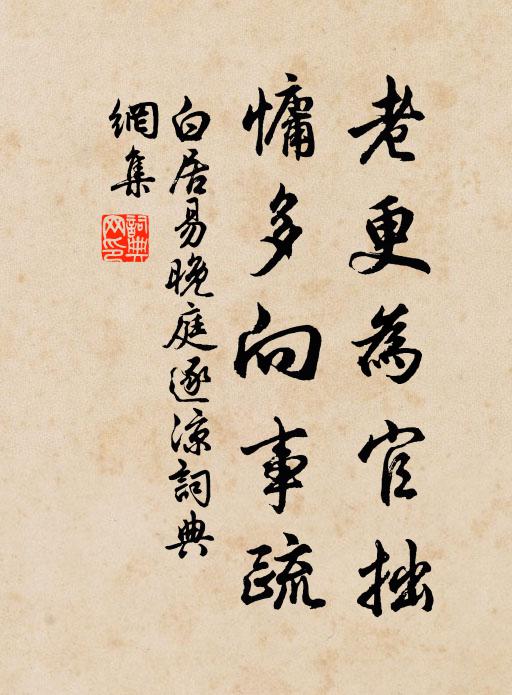 老更為官拙
慵多向事疏
白居易晚庭逐涼詞典
網集
詞典
网印